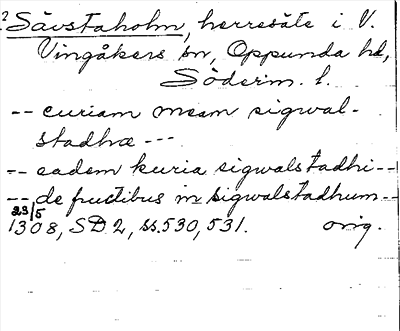 2 Sävstaholm, herresäte i V.
Vingåkers sn, Oppunda hd,
Söderm. l.
-- curiam meam sigwal-
stadhæ ---
-- eadem kuria sigwalstadhi --
-- de fructibus in sigwalstadhum --
23/5
1308, SD 2, ss. 530, 531. orig.